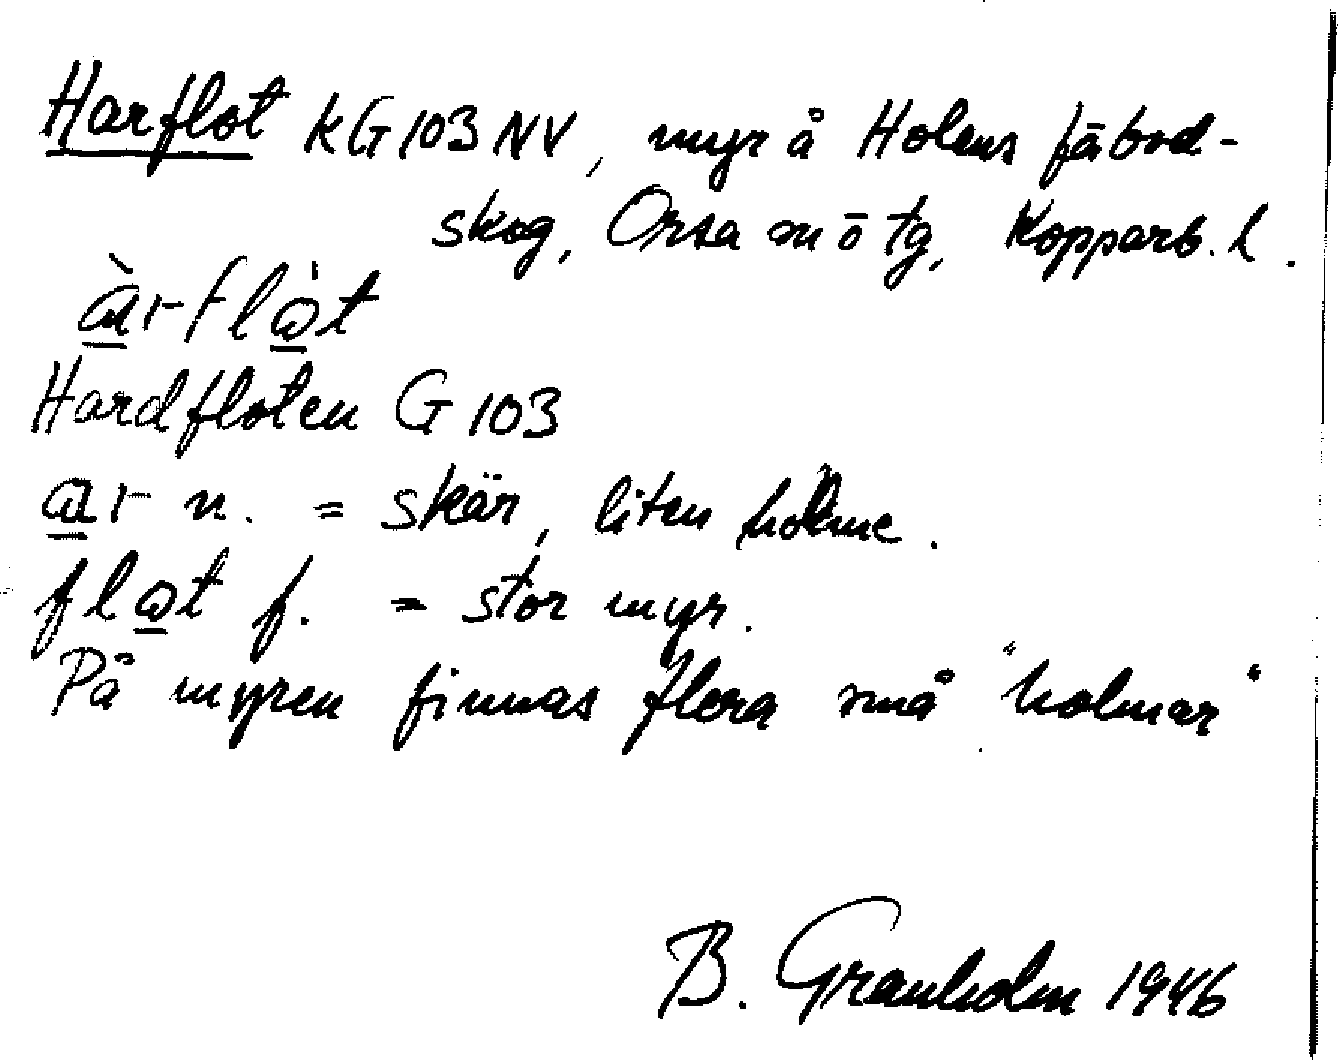 Harflot kG 103 NV, myr å Holens fäbod-
skog, Orsa sn ö tg, Kopparb. l.
àrflòt
Hardfloten G 103
ar n. = skär, liten holme.
flot f. = stor myr.
På myren finnas flera små "holmar"
B. Granholm 1946